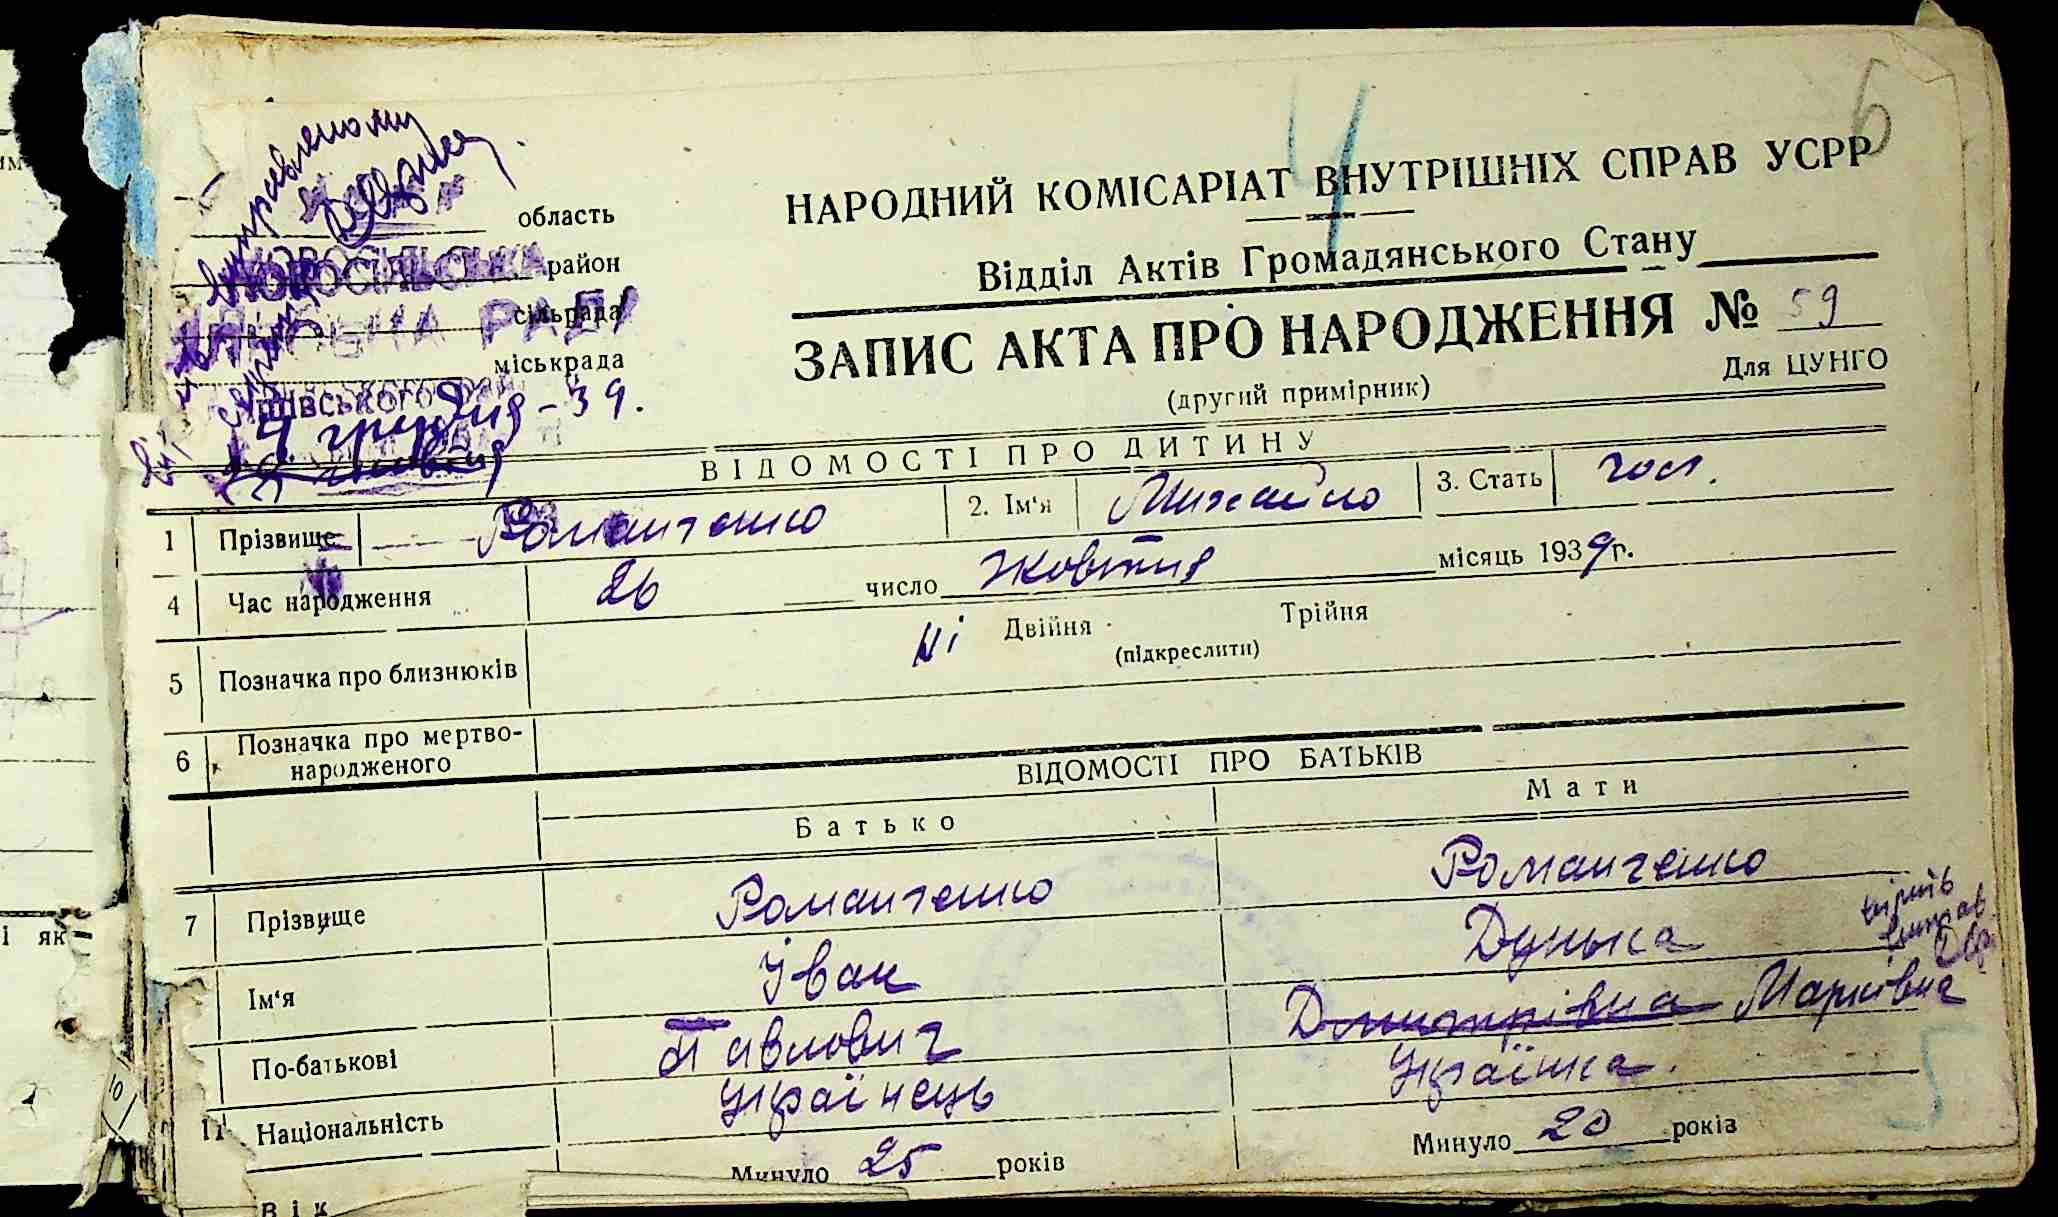 6
4
НАРОДНИЙ КОМІСАРІАТ ВНУТРІШНІХ СПРАВ УСРР
Відділ Актів Громадянського Стану
ЗАПИС АКТА ПРО НАРОДЖЕННЯ № 59
(другий примірник)
Для ЦУНГО
виправленому
область
район
НОВОСІЛЬСЬКА
сільрада
РАДА
міськрада
4 грудня - 39.
ВІДОМОСТІ ПРО ДИТИНУ
1 Прізвище Романченко 2. Ім'я Михайло 3. Стать чол.
4 Час народження 26 число Жовтня місяць 1939 р.
5 Позначка про близнюків ні Двійня Трійня
(підкреслити)
6 Позначка про мертво-
народженого
ВІДОМОСТІ ПРО БАТЬКІВ
Батько Мати
7 Прізвище Романченко Романченко
Ім'я Іван Дунька
По-батькові Павлович Дмитрівна Марківна
11 Національність Українець Українка.
Вік Минуло 25 років Минуло 20 років
5
10
і як